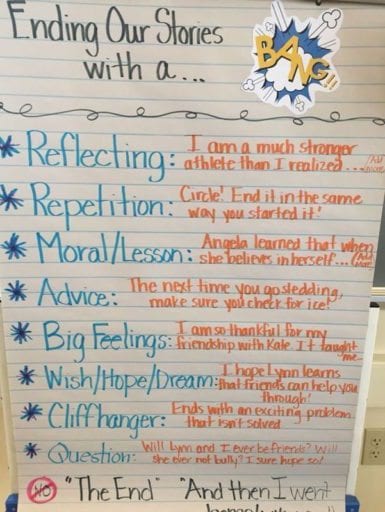 Ending Our Stories
with a...
BANG!!
* Reflecting: I am a much stronger
athlete than I realized... (Add More
* Repetition: Circle! End it in the same
way you started it!
* Moral/Lesson: Angela learned that when
she believes in herself... (Add More
* Advice: The next time you go sledding,
make sure you check for ice!
* Big Feelings: I am so thankful for my
friendship with Kate. It taught
me...
* Wish/Hope/Dream: I hope Lynn learns
that friends can help you
through!
* Cliffhanger: Ends with an exciting problem
that isn't solved
* Question: Will Lynn and I ever be friends? Will
she ever not bully? I sure hope so!
NO "The End" "And then I went